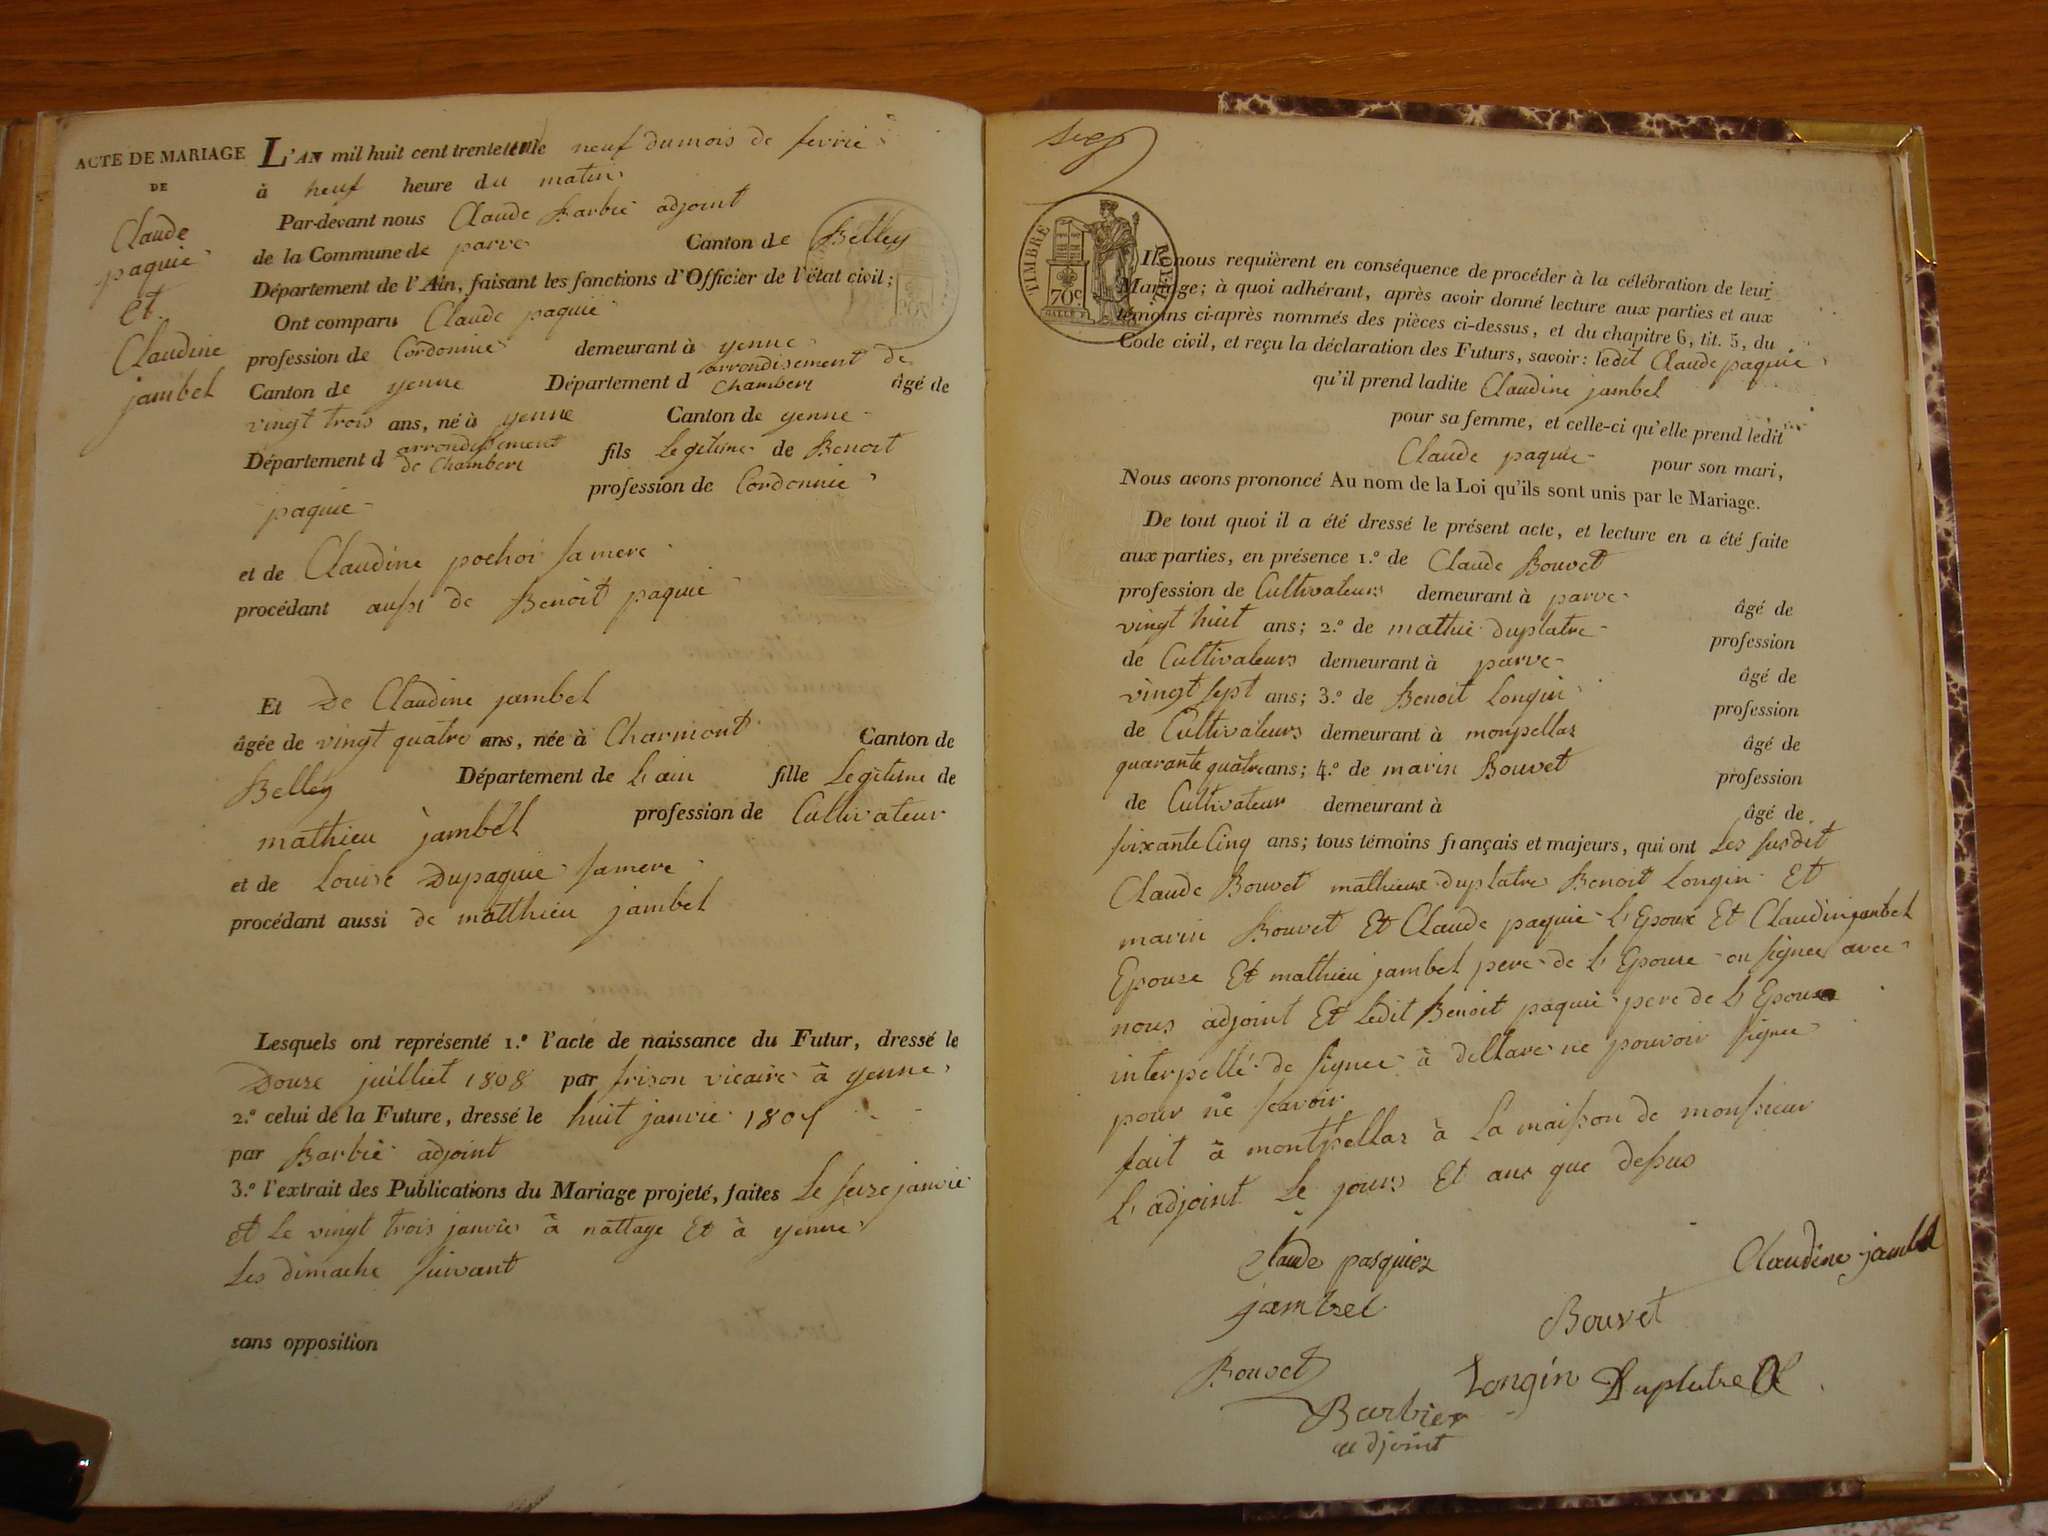 ACTE DE MARIAGE
DE
Claude
paquié
et
Claudine
jambel
L'AN mil huit cent trente le neuf du mois de fevrié
à neuf heure du matin
Par-devant nous Claude Barbié adjoint
de la Commune de parve Canton de Belley
Département de l'Ain, faisant les fonctions d'Officier de l'état civil;
Ont comparu Claude paquié
profession de Cordonnié demeurant à yenne
Canton de yenne Département d arrondisement de Chamberi âgé de
vingt trois ans, né à yenne Canton de yenne
Département d arrondissement de Chamberi fils Legitime de Benoit
paquié profession de Cordonnié
et de Claudine pochoi sa mere
procédant aussi de Benoit paquié
Et De Claudine jambel
âgée de vingt quatre ans, née à Charniont Canton de
Belley Département de L'ain fille Legitime de
mathieu jambel profession de Cultivateur
et de Louise Dupaquié sa mere
procédant aussi de matthieu jambel
Lesquels ont représenté 1.º l'acte de naissance du Futur, dressé le
Douze juilliet 1808 par frison vicaire à yenne
2.º celui de la Future, dressé le huit janvié 1807
par Barbié adjoint
3.º l'extrait des Publications du Mariage projeté, faites Le seize janvié
et Le vingt trois janvié à nattage Et à yenne
Les dimache suivant
sans opposition
TIMBRE ROYAL
70c
Ils nous requièrent en conséquence de procéder à la célébration de leur
Mariage; à quoi adhérant, après avoir donné lecture aux parties et aux
témoins ci-après nommés des pièces ci-dessus, et du chapitre 6, tit. 5, du
Code civil, et reçu la déclaration des Futurs, savoir: ledit Claude paquié
qu'il prend ladite Claudine jambel
pour sa femme, et celle-ci qu'elle prend ledit
Claude paquié pour son mari,
Nous avons prononcé Au nom de la Loi qu'ils sont unis par le Mariage.
De tout quoi il a été dressé le présent acte, et lecture en a été faite
aux parties, en présence 1.º de Claude Bouvet
profession de Cultivateurs demeurant à parve âgé de
vingt huit ans; 2.º de mathié duplatre profession
de Cultivateurs demeurant à parve âgé de
vingt sept ans; 3.º de Benoit Longin profession
de Cultivateurs demeurant à monpellas âgé de
quarante quatre ans; 4.º de marin Bouvet profession
de Cultivateur demeurant à âgé de
soixante Cinq ans; tous témoins français et majeurs, qui ont Les susdit
Claude Bouvet mathieux duplatre Benoit Longin Et
marin Bouvet Et Claude paquié L'Epoux Et Claudin jambel
Epouse Et mathieu jambel pere de L'Epouse on signée avec
nous adjoint Et Ledit Benoit paquié pere de L'Epoux
interpellé de signée à dellare ne pouvoir signée
pour ne scavoir
fait à montpellas à La maison de monsieur
L'adjoint Le jours Et anr que dessus
Claude pasquier
Claudine jambel
jambel
Bouvet
Bouvet
Longin Duplatre
Barbier
adjoint